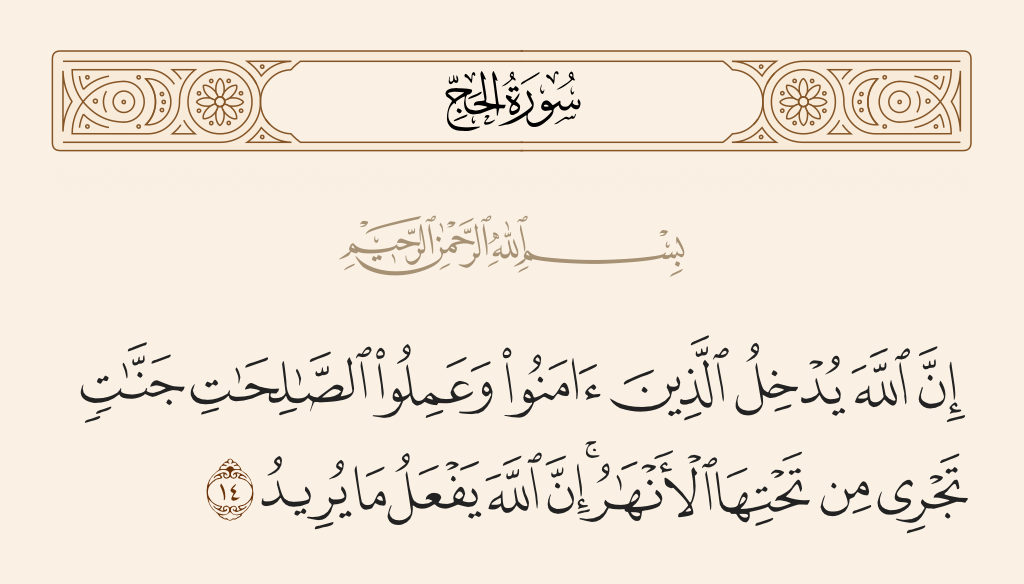 سُورَةُ الْحَجِّ
بِسْمِ ٱللَّهِ ٱلرَّحْمَٰنِ ٱلرَّحِيمِ
إِنَّ ٱللَّهَ يُدْخِلُ ٱلَّذِينَ ءَامَنُوا۟ وَعَمِلُوا۟ ٱلصَّـٰلِحَـٰتِ جَنَّـٰتٍ
تَجْرِى مِن تَحْتِهَا ٱلْأَنْهَـٰرُ ۚ إِنَّ ٱللَّهَ يَفْعَلُ مَا يُرِيدُ ١٤